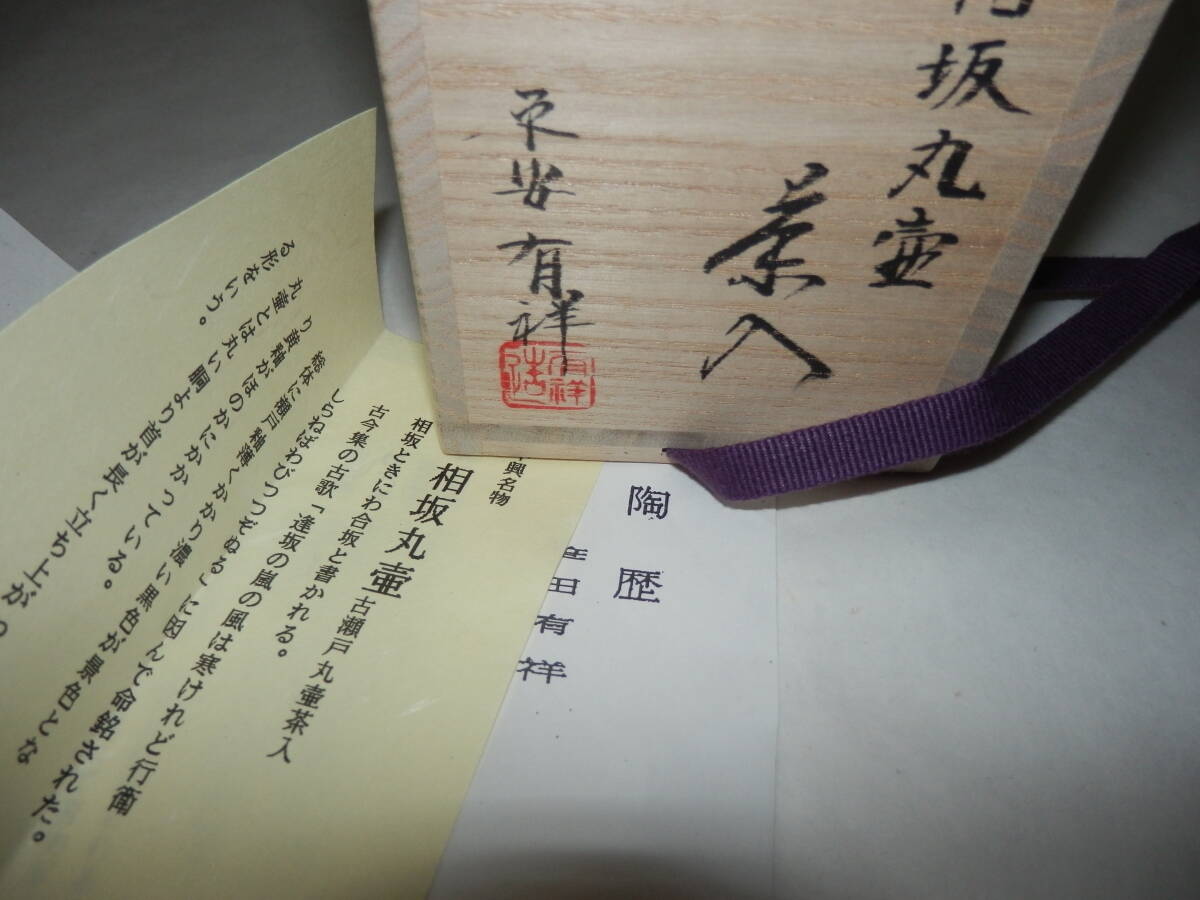 相坂丸壷
茶入
平安 有祥
有祥造
陶歴
田有祥
中興名物
相坂丸壷 古瀬戸丸壷茶入
相坂ときにわ合坂と書かれる。
古今集の古歌「逢坂の嵐の風は寒けれど行衛
しらねばわびつつぞぬる」に因んで命銘された。
総体に瀬戸釉薄くかかり濃い黒色が景色とな
り黄釉がほのかにかかっている。
丸壷とは丸い胴より首が長く立ち上がっ
る形をいう。